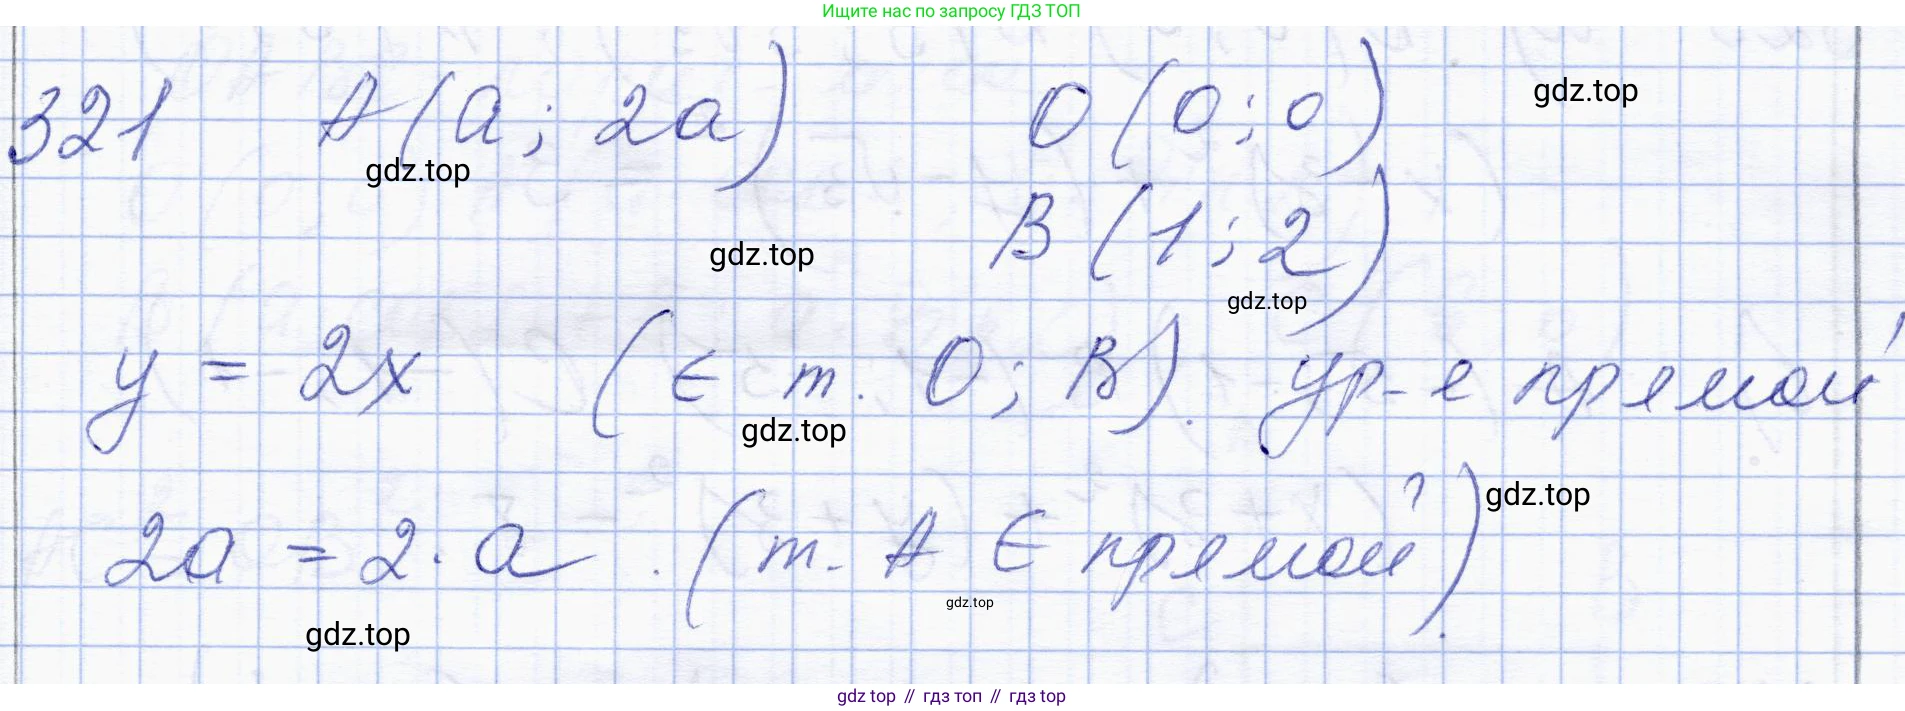 Ищите нас по запросу ГДЗ ТОП
321 A(a; 2a) O(0;0)
gdz.top
gdz.top
B(1;2)
gdz.top
gdz.top
y = 2x (∈ т. O; B). ур-е прямой
gdz.top
gdz.top
2a = 2·a . (т. A ∈ прямой).
gdz.top
gdz.top
gdz top // гдз топ // гдз top